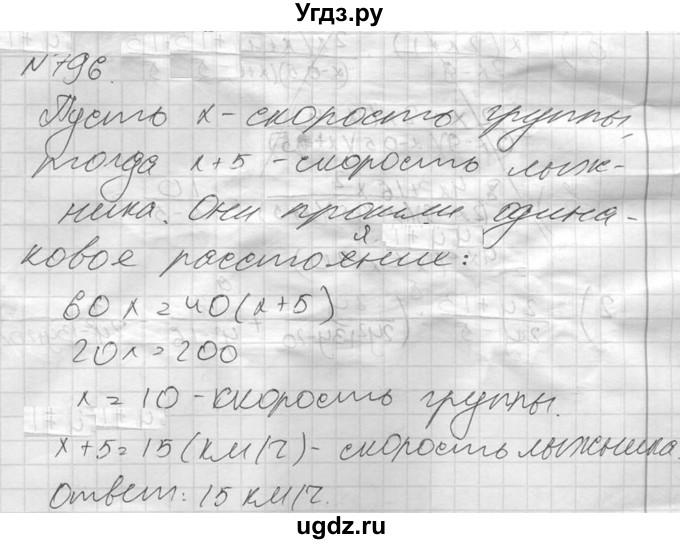 Угдз.ру
N 796.
Пусть x - скорость группы,
тогда x+5 - скорость лыж-
ника. Они прошли одина-
ковое расстояние:
60x = 40(x+5)
20x = 200
x = 10 - скорость группы.
x+5 = 15 (км/ч) - скорость лыжника.
Ответ: 15 км/ч.
ugdz.ru